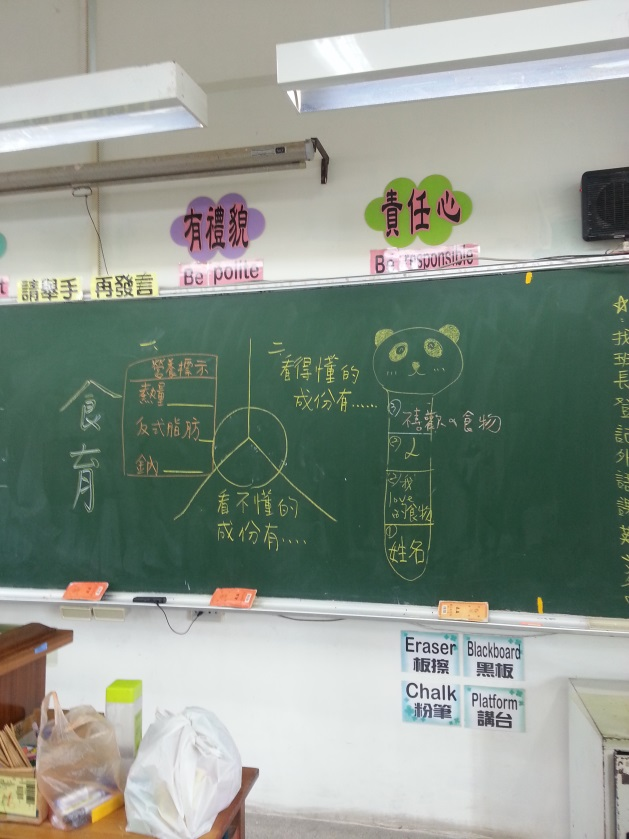 有禮貌
Be polite
責任心
Be responsible
請舉手
再發言
食育
一、
營養標示
熱量
反式脂肪
鈉
二、
看得懂的
成份有.....
看不懂的
成份有....
喜歡の食物
我
love
的食物
①
姓名
找班長登記外
Eraser
板擦
Blackboard
黑板
Chalk
粉筆
Platform
講台